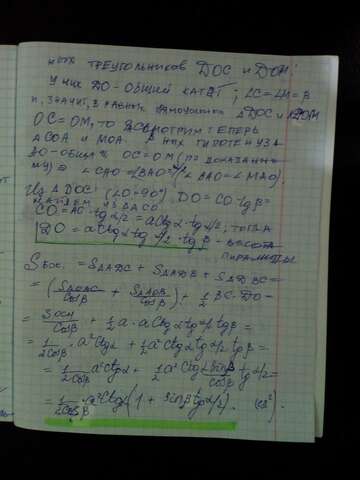 ных треугольников DOC и DOM:
У них DO - общий катет; ∠C = ∠M = β
и, значит, в равных △DOC и △DOM
OC = OM, то рассмотрим теперь
△COA и MOA. У них гипотенуза
AO - общая OC = OM (по доказанному)
⇒ ∠CAO = ∠BAO = α/2 ∠MAO).
Из △DOC: (∠O = 90°). DO = CO·tgβ =
найдём из △ACO
CO = AO·tgα/2 = a ctgα·tgα/2; тогда
DO = a ctgα·tgα/2·tgβ - высота
пирамиды
Sбок. = S△ADC + S△ADB + S△DBC =
= (S△OAC/cosβ + S△AOB/cosβ) + 1/2 BC·DO =
= Sосн/cosβ + 1/2 a·a ctgα tgα/2 tgβ =
= 1/2cosβ · a²ctgα + 1/2 a²ctgα tgα/2 tgβ =
= 1/2cosβ a²ctgα + 1/2 a²ctgα sinβ/cosβ tgα/2 =
= 1/2cosβ · a²ctgα (1 + sinβ tgα/2). (ед²).